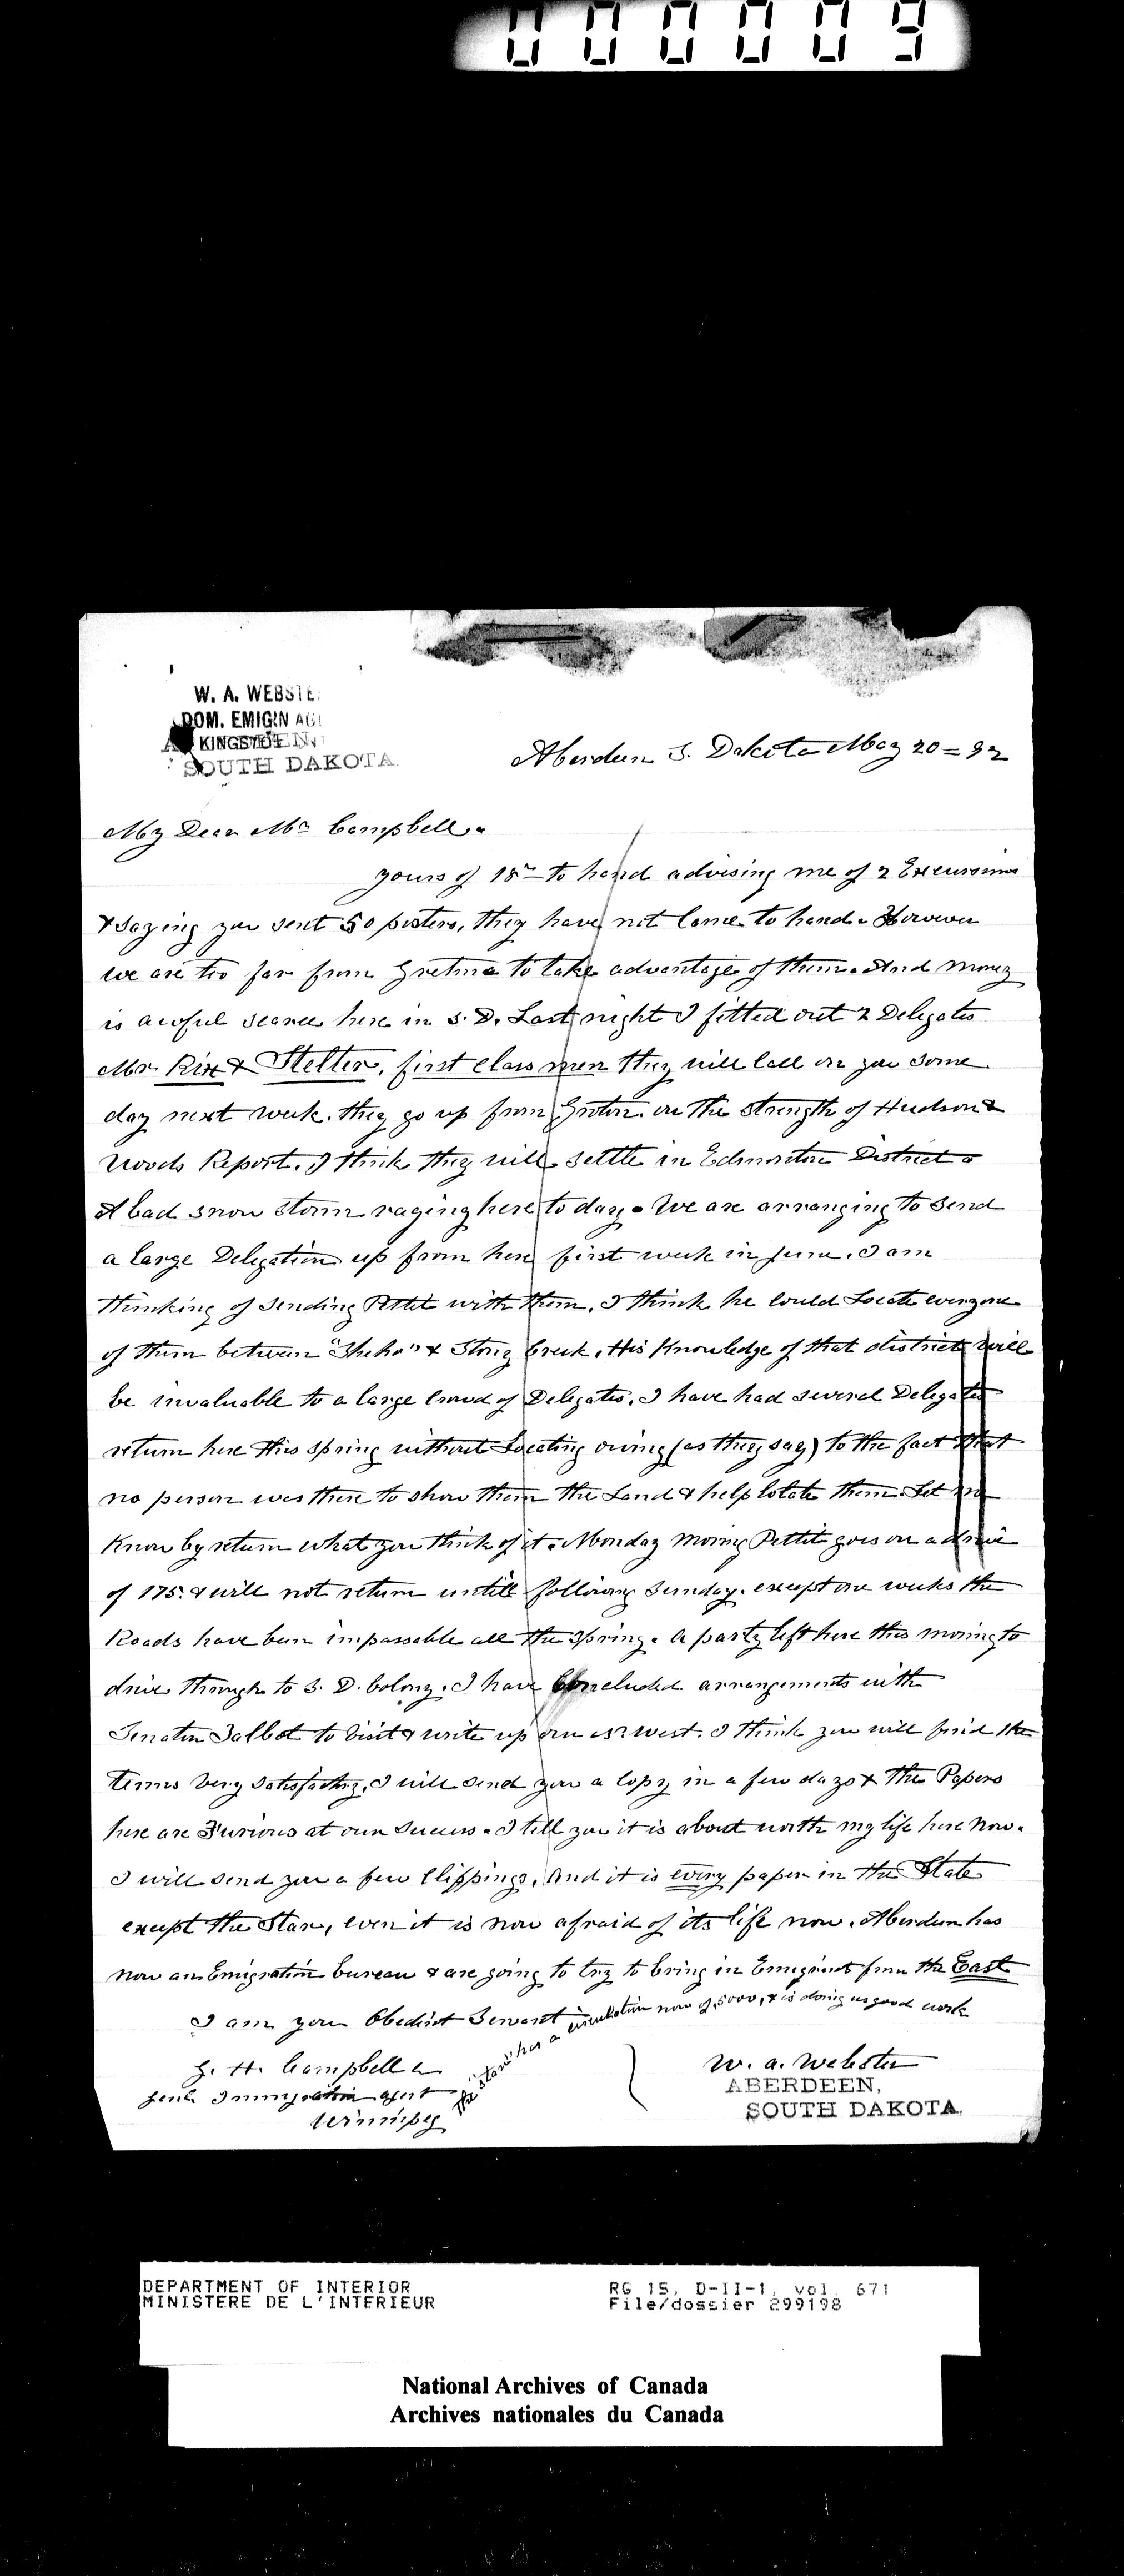 000009
W. A. WEBSTE
DOM. EMIGN AG
KINGSTO
SOUTH DAKOTA
Aberdeen S. Dakota May 20 = 92
My Dear Mr Campbell.
yours of 18th to hand advising me of 2 Excursions
& saying you sent 50 posters, they have not Come to hand. However
we are too far from Gretna to take advantage of them. And money
is awful scarce here in S. D. Last night I fitted out 2 Delegates
Mr. Rix & Stelter, first class men they will Call on you some
day next week. they go up from Groton. on the strength of Hudson &
Woods Report. I think they will settle in Edmonton District.
A bad snow storm raging here to day. We are arranging to send
a large Delegation up from here first week in June. I am
thinking of sending Pettit with them. I think he could Locate everyone
of them between "Sheho" & Stony Creek. His Knowledge of that district will
be invaluable to a large Crowd of Delegates. I have had several Delegates
return here this spring without Locating owing (as they say) to the fact that
no person was there to show them the Land & help lotate them. Let me
Know by return what you think of it. Monday moring Pettit goes on a drive
of 175. & will not return untill following Sunday. except one weeks the
Roads have been impassable all the spring. A party left here this moring to
drive through to S. D. Colony. I have Concluded arrangements with
Senator Talbot to Visit & write up our West. I think you will find the
terms Very Satisfactory. I will send you a Copy in a few days & the Papers
here are Furious at our Success. I tell you it is about worth my life here Now.
I will send you a few Clippings. And it is every paper in the State
except the Star, even it is now afraid of its life now. Aberdeen has
now an Emigration bureau & are going to try to bring in Emigrants from the East
I am your Obedient Servant
The "Star" has a circulation now of 5000, & is doing us good work
W. A. Webster
ABERDEEN,
SOUTH DAKOTA.
J. H. Campbell
Genl Immigration agent
Winnipeg
DEPARTMENT OF INTERIOR
MINISTERE DE L'INTERIEUR
RG 15, D-II-1, vol. 671
File/dossier 299198
National Archives of Canada
Archives nationales du Canada